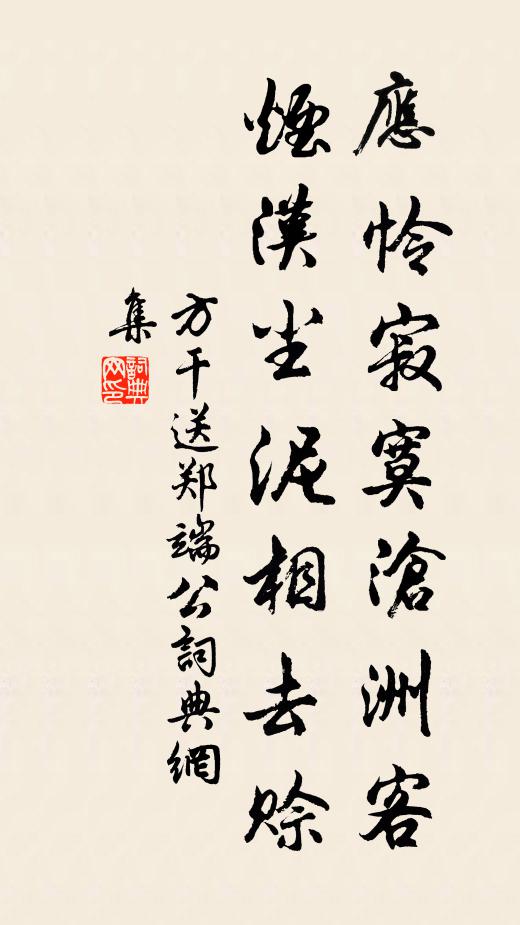 應怜寂寞滄洲客
煙漢尘泥相去赊
方干送郑端公詞典網
集
詞典网印